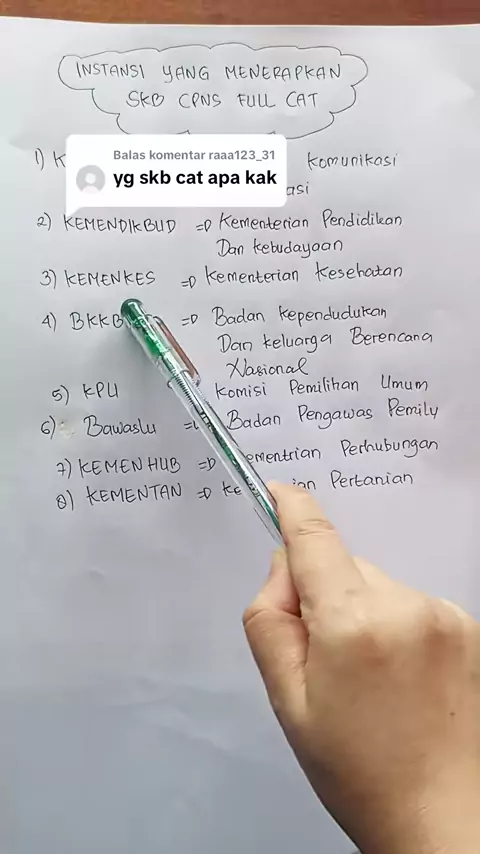 INSTANSI YANG MENERAPKAN
SKB CPNS FULL CAT
Balas komentar raaa123_31
yg skb cat apa kak
1) K komunikasi
asi
2) KEMENDIKBUD => Kementerian Pendidikan
Dan kebudayaan
3) KEMENKES => Kementerian Kesehatan
4) BKKB => Badan Kependudukan
Dan keluarga Berencana
Nasional
5) KPU Komisi Pemilihan Umum
6) Bawaslu = Badan Pengawas Pemilu
7) KEMENHUB => ementrian Perhubungan
8) KEMENTAN => Ke ian Pertanian